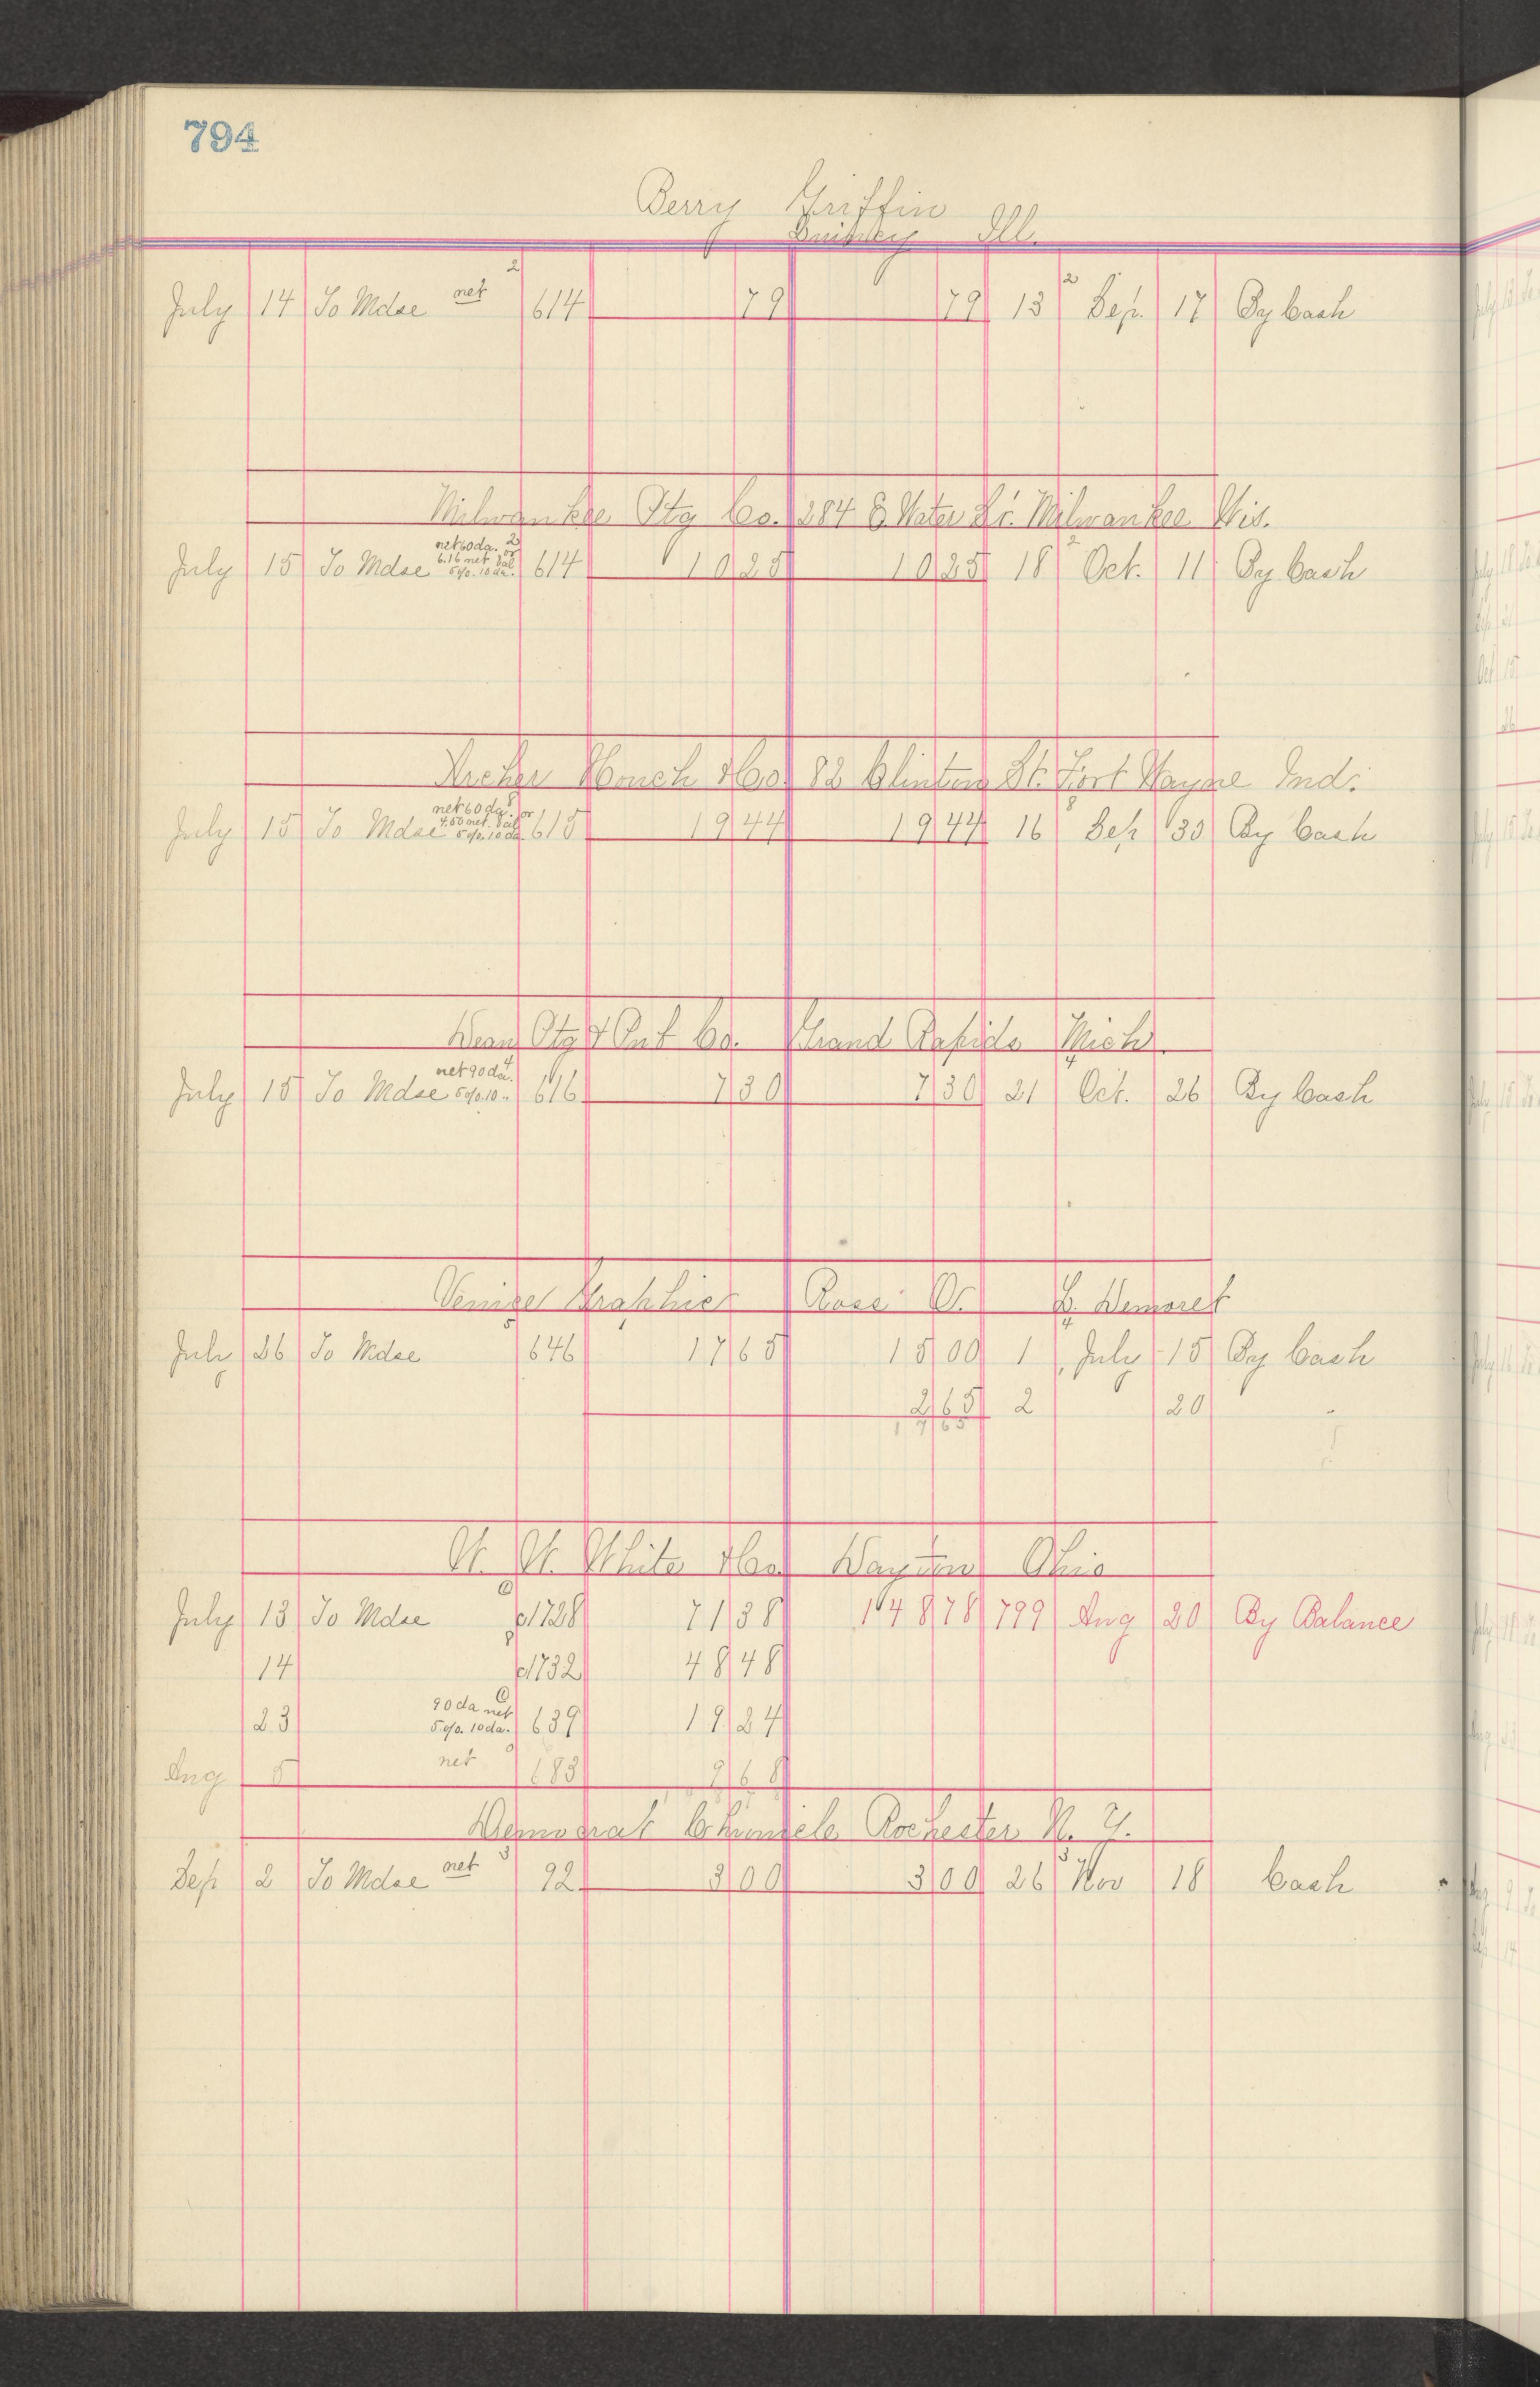 794
Berry Griffin
Quincy Ill.
2 2
July 14 To Mdse net 614 79 79 13 Sep. 17 By Cash
Milwaukee Ptg Co. 284 E Water St. Milwaukee Wis.
net 60 da. 2 or 2
6.16 net bal
5 o/o. 10 da.
July 15 To Mdse 614 10 25 10 25 18 Oct. 11 By Cash
Archer Housh &Co. 82 Clinton St. Fort Wayne Ind.
net 60 da. 8 or 8
4.50 net. bal
5 o/o. 10 da.
July 15 To Mdse 615 19 44 19 44 16 Sep 30 By Cash
Dean Ptg & Pub Co. Grand Rapids Mich.
net 90 da. 4 4
July 15 To Mdse 5 o/o. 10 " 616 7 30 7 30 21 Oct. 26 By Cash
Graphics C. Demorest
July 26 To Mdse 646 17 65 15 00 1 July 15 By Cash
2 65 2 20
17 65
White &Co. Dayton Ohio
July 13 To Mdse 1728 71 38 148 78 799 Aug 20 By Balance
14 1732 48 48
90 da net
23 5 o/o. 10 da. 639 19 24
Aug 5 net 683 9 68
Democrat Chronicle Rochester N. Y.
3 3
Sep 2 To Mdse net 92 3 00 3 00 26 Nov 18 Cash